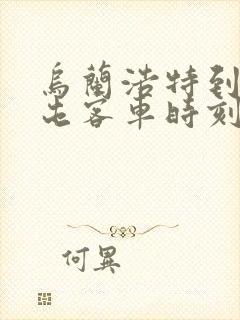 烏蘭浩特到
屯客車時刻
何異